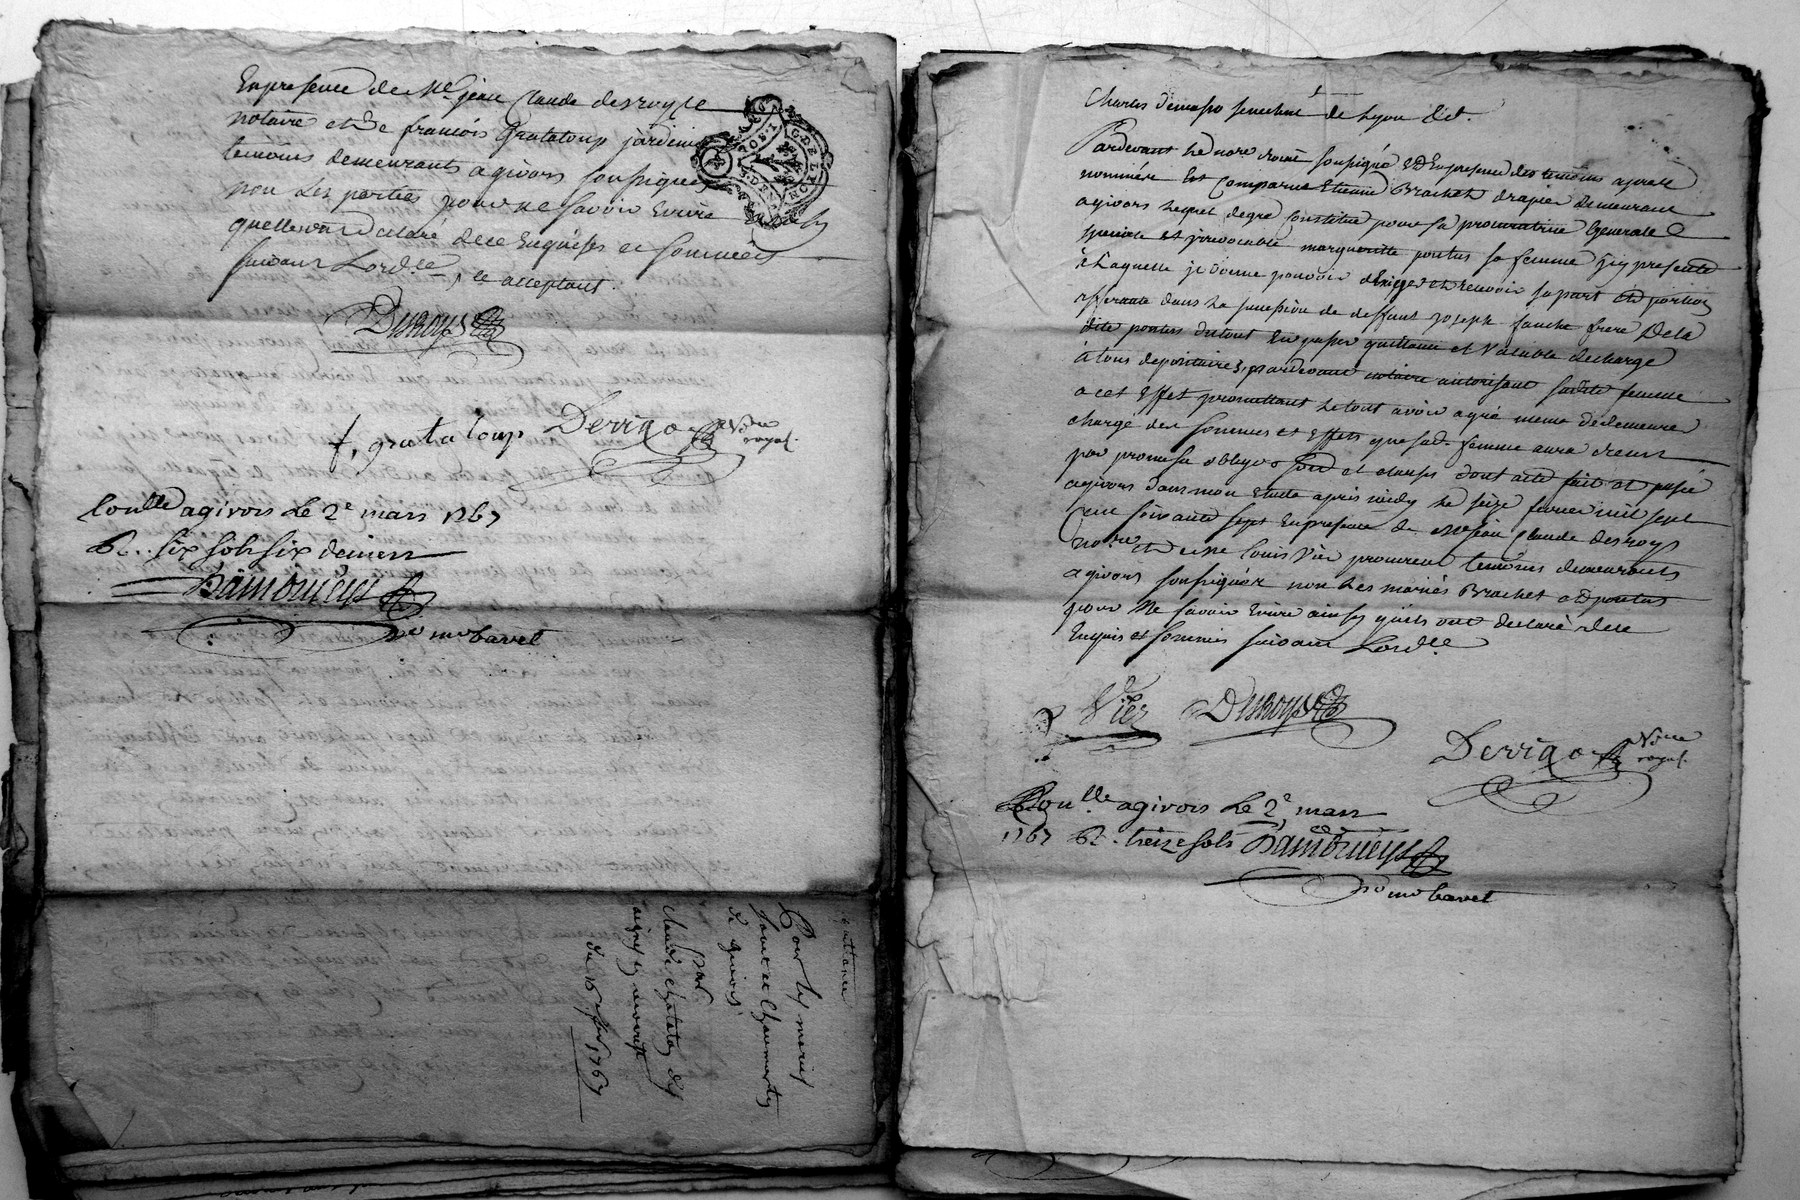 En presence de Me jean Claude desroys
notaire et de francois Grataloup jardinier
temoins demeurants a givors soussignes
non les parties pour ne savoir Ecrire
quelles ont declaré de ce Enquises et sommées
suivant Lord.ce, ce acceptant.
Desroys
f, grataloup Derrigo Nore royal.
Conlle a givors Le 2e mars 1767
R. six sols six deniers
no mo bavet
Pour les mariés
de givors
par
du 16 fevr 1767
de Lyon dit.
Pardevant Le nore soussigné et En presence des temoins apres
nommés Est Comparu Etienne Brachet drapier demeurant
a givors Lequel de gré Constitue pour sa procuratrice Generale
speciale et irrevocable marguerite pontus sa femme icy presente
à Laquelle il donne pouvoir dExiger et recevoir sa part et portion
afferante dans La succession de deffunt joseph fauche frere De la
dite pontus du tout En passer quittance et Valable decharge
à tous depositaires, pardevant notaire autorisant sadite femme
a cet Effet promettant Le tout avoir agré meme de demeurer
chargé des sommes et Effets que sad. femme aura
par promesse oblig.on soum et clauses dont acte fait et passé
a givors dans mon Etude apres midy Le seize fevrier mil sept
Cent soixante sept En presence de Me jean Claude desroys
No.re et de Me Louis Vier procureur temoins demeurants
a givors soussignés non Les mariés Brachet et pontus
pour Ne savoir Ecrire ainsy quils ont declaré de ce
Enquis et sommés suivant Lord.ce
Vier Desroys
Derrigo Nore royal.
Conlle a givors Le 2e mars
1767 R. treize sols
no mo bavet